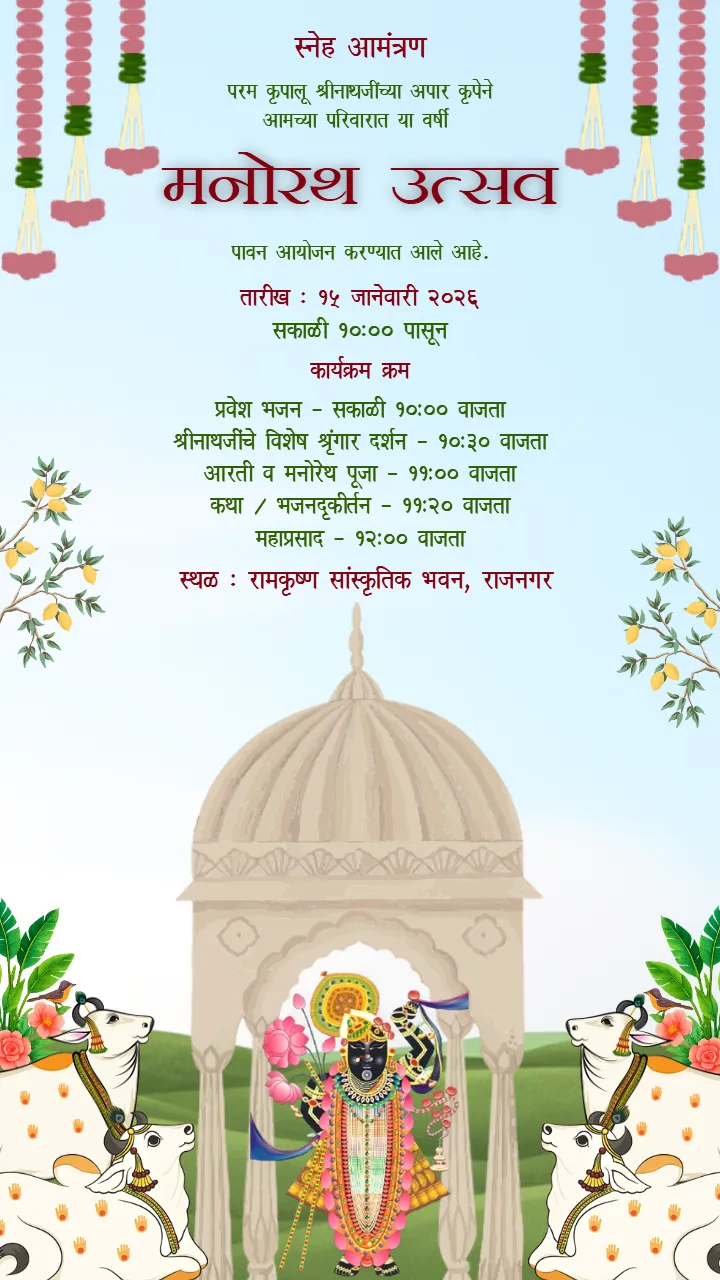 स्नेह आमंत्रण
परम कृपालू श्रीनाथजींच्या अपार कृपेने
आमच्या परिवारात या वर्षी
मनोरथ उत्सव
पावन आयोजन करण्यात आले आहे.
तारीख : १५ जानेवारी २०२६
सकाळी १०:०० पासून
कार्यक्रम क्रम
प्रवेश भजन - सकाळी १०:०० वाजता
श्रीनाथजींचे विशेष श्रृंगार दर्शन - १०:३० वाजता
आरती व मनोरेथ पूजा - ११:०० वाजता
कथा / भजनदृकीर्तन - ११:२० वाजता
महाप्रसाद - १२:०० वाजता
स्थळ : रामकृष्ण सांस्कृतिक भवन, राजनगर